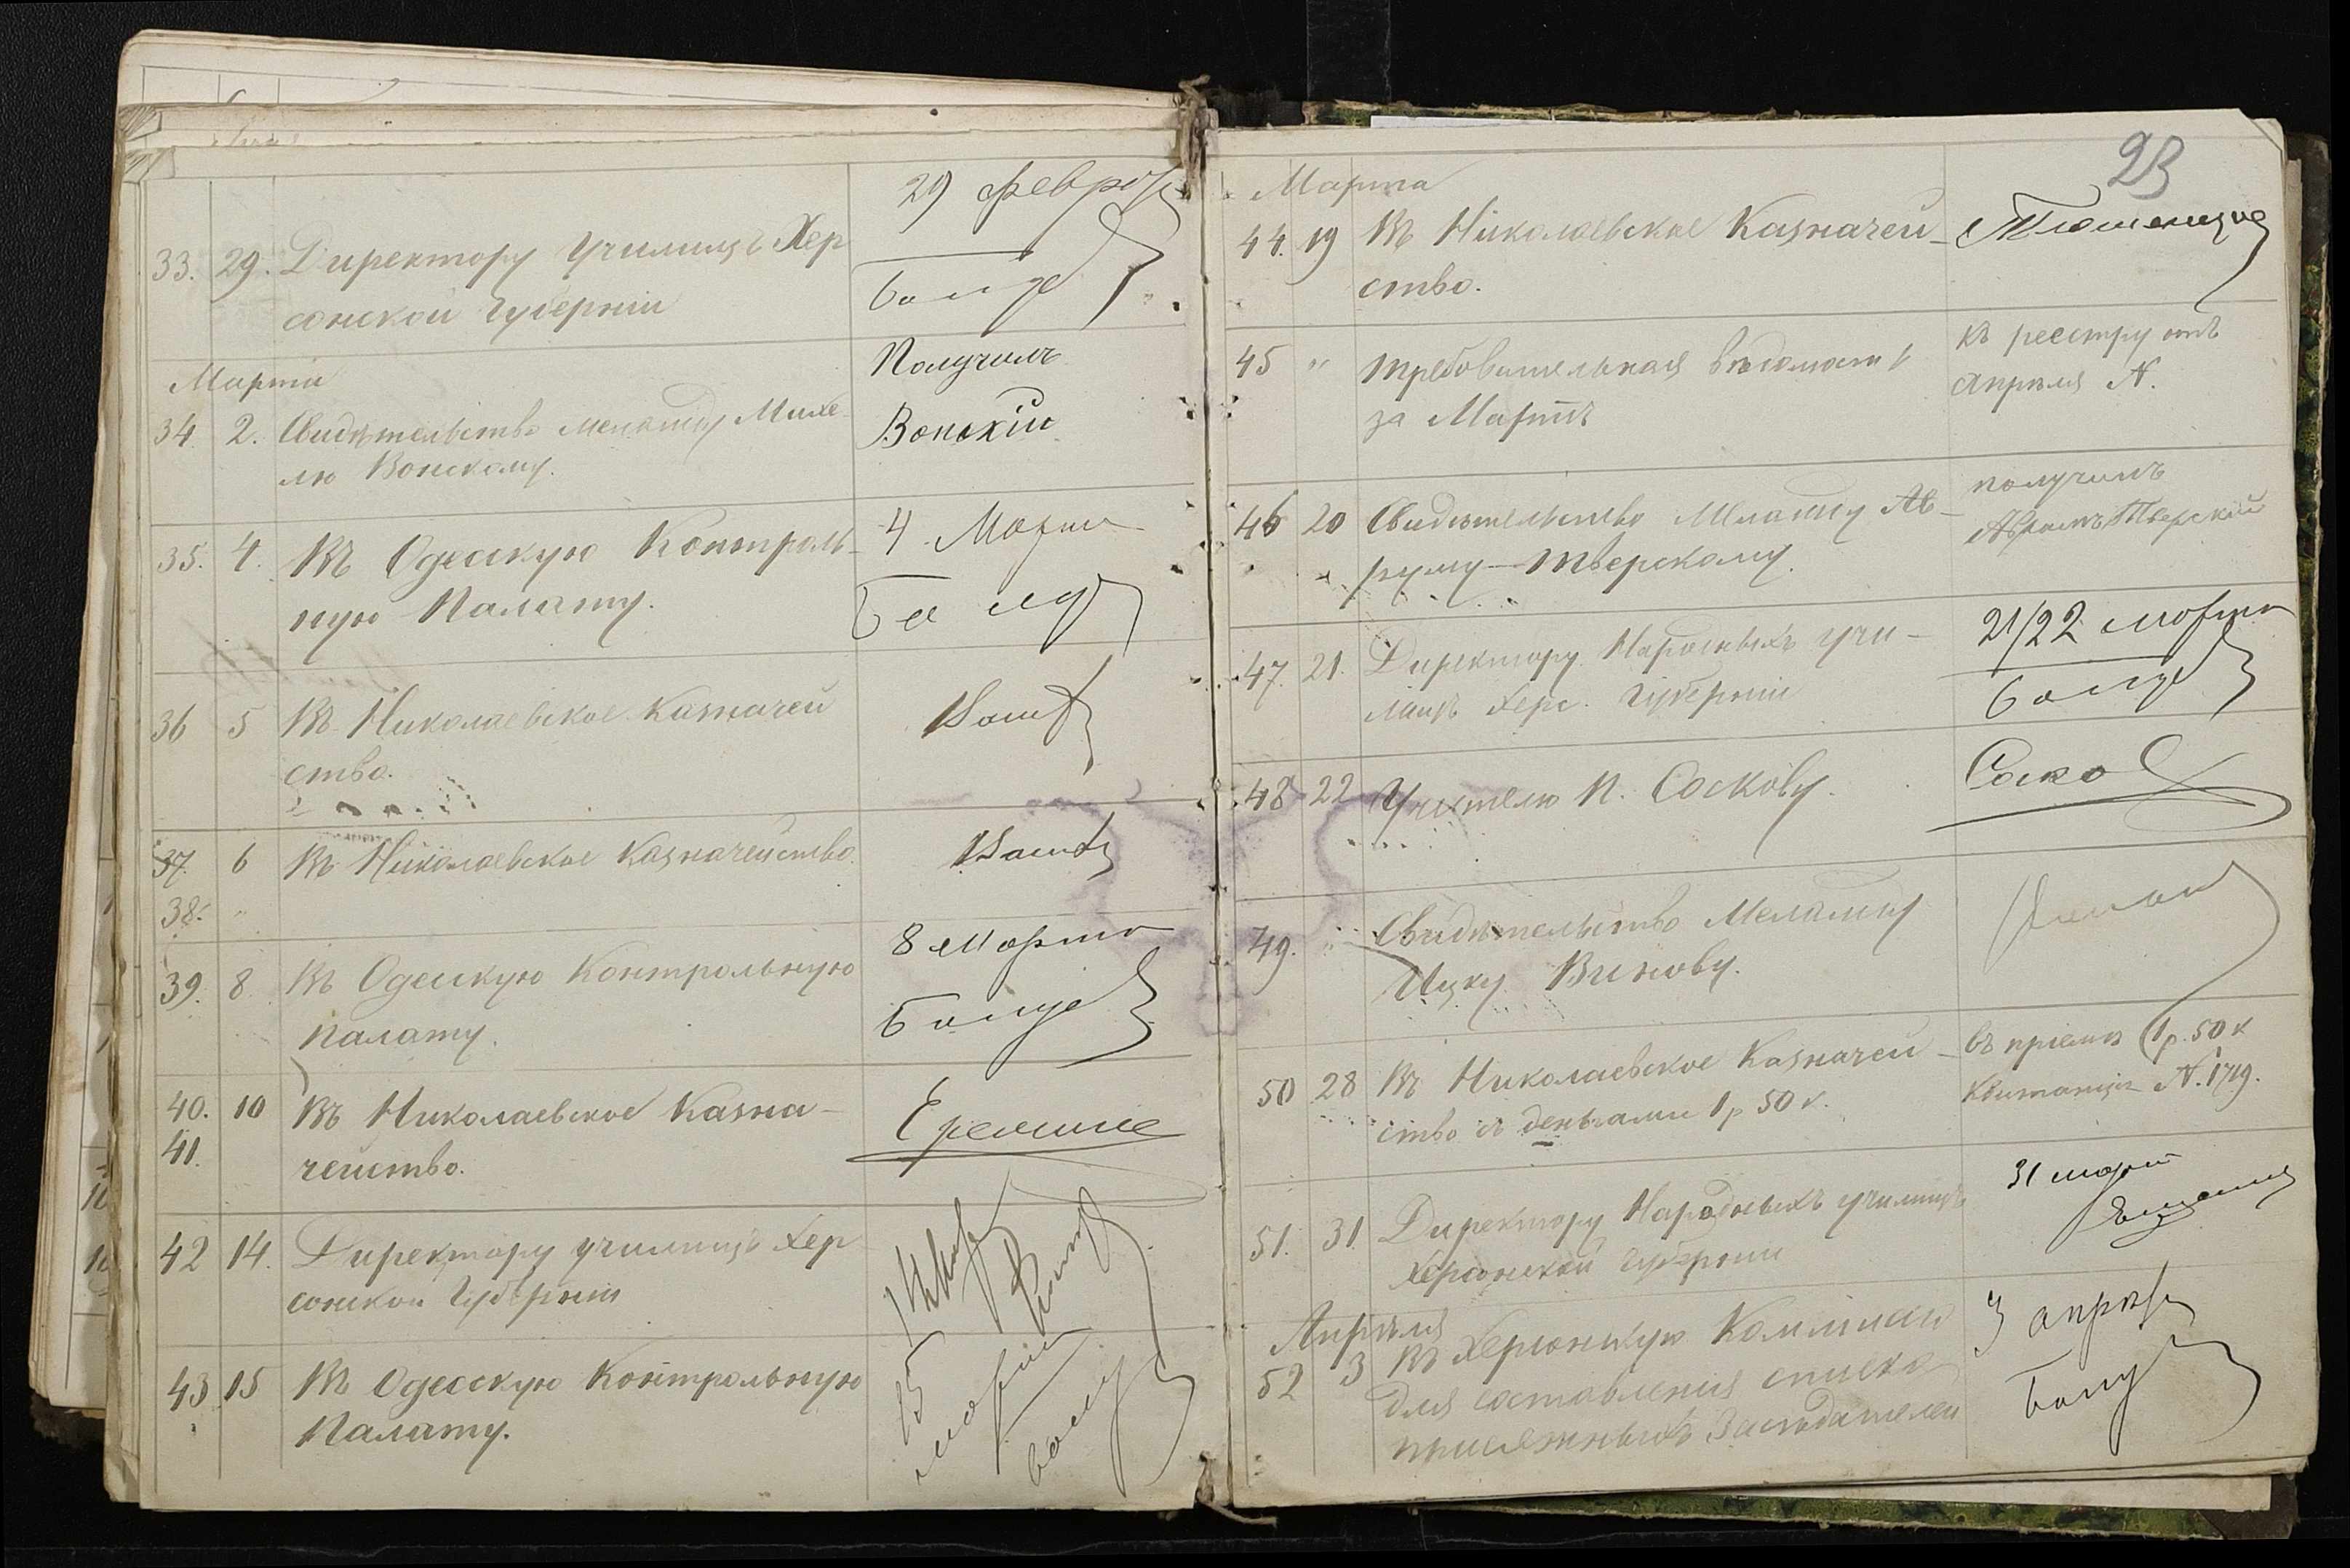 29 февраля
33. 29. Директору Училищъ Хер
сонской Губерніи
Марта
Получилъ
34. 2. Свидѣтельство меламду Михе
лю Вонскому.
Вонскій
35. 4. Въ Одесскую Контроль-
ную Палату.
4 Марта
36 5 Въ Николаевское Казначей
ство.
37. 6 Въ Николаевское Казначейство.
38. "
8 Марта
39. 8 Въ Одесскую Контрольную
Палату.
40. 10 Въ Николаевское Казна-
41. чейство.
42 14. Директору училищъ Хер
сонской Губерніи
43 15 Въ Одесскую Контрольную
Палату.
15
марта
23
Марта
44. 19 Въ Николаевское Казначей-
ство.
45 " Требовательная вѣдомость
за Мартъ
къ реестру отъ
Апрѣля N.
46 20 Свидѣтельство Меламду Ав-
руму Тверскому.
получилъ
Аврумъ Тверской
47. 21. Директору Народныхъ учи-
лищъ Херс. Губерніи
21/22 марта
48 22 Учителю П. Соскову.
49. " Свидѣтельство Меламду
Ицку Винову.
50 28 Въ Николаевское Казначей-
ство съ деньгами 1 р 50 к.
въ пріемѣ 1 р. 50 к
Квитанція N. 1719.
51. 31. Директору Народныхъ училищъ
Херсонской Губерніи
31 марта
Апрѣля
52 3 Въ Херсонскую Коммисію
для составленія списка
присяжныхъ Засѣдателей
3 апрѣля